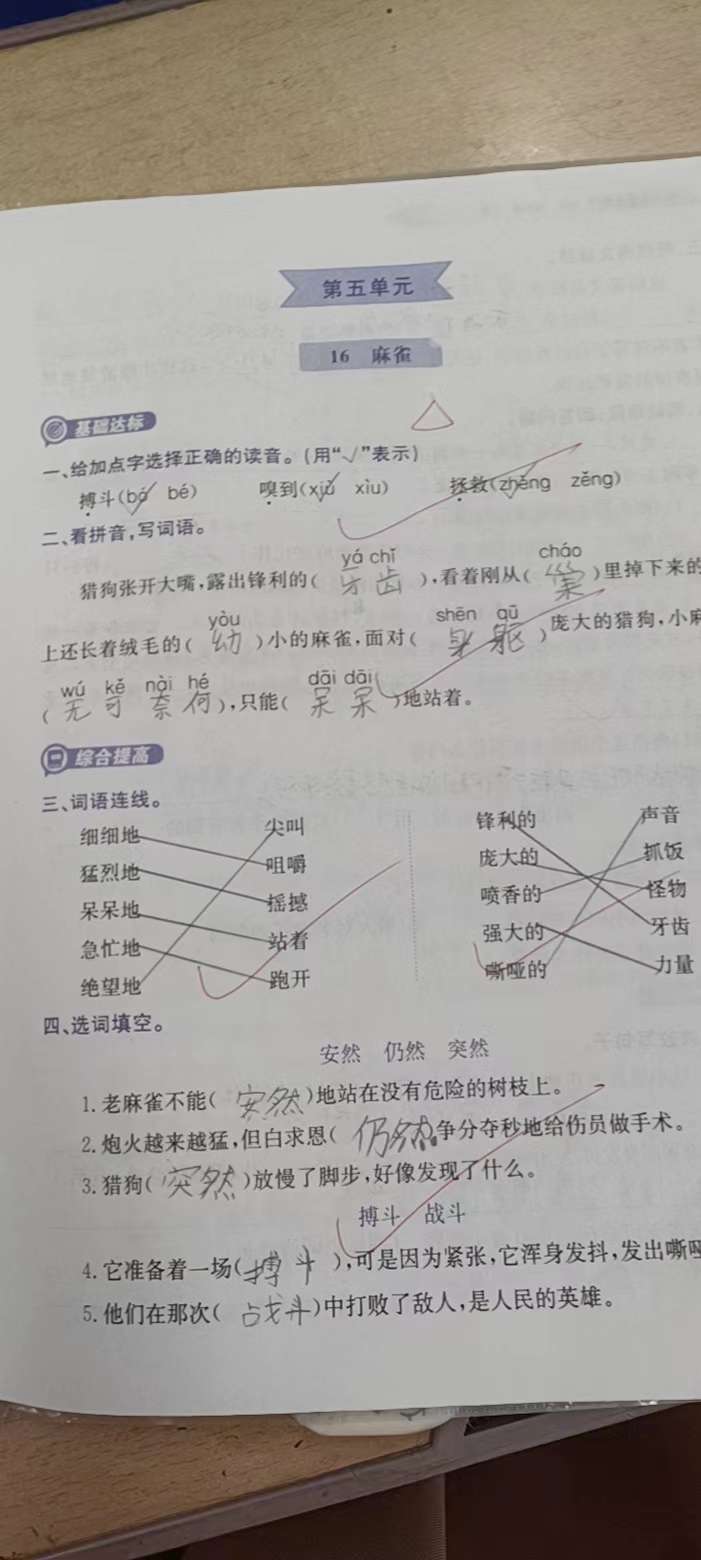 第五单元
16 麻雀
基础达标
一、给加点字选择正确的读音。(用“√”表示)
搏斗(bó√ bé) 嗅到(xiù√ xìu) 拯救(zhěng√ zěng)
二、看拼音,写词语。
yá chǐ cháo
猎狗张开大嘴,露出锋利的(牙齿),看着刚从(巢)里掉下来的
yòu shēn qū
上还长着绒毛的(幼)小的麻雀,面对(身躯)庞大的猎狗,小麻
wú kě nài hé dāi dāi
(无可奈何),只能(呆呆)地站着。
综合提高
三、词语连线。
细细地 尖叫 锋利的 声音
猛烈地 咀嚼 庞大的 抓饭
呆呆地 摇撼 喷香的 怪物
急忙地 站着 强大的 牙齿
绝望地 跑开 嘶哑的 力量
四、选词填空。
安然 仍然 突然
1.老麻雀不能(安然)地站在没有危险的树枝上。
2.炮火越来越猛,但白求恩(仍然)争分夺秒地给伤员做手术。
3.猎狗(突然)放慢了脚步,好像发现了什么。
搏斗 战斗
4.它准备着一场(搏斗),可是因为紧张,它浑身发抖,发出嘶哑
5.他们在那次(战斗)中打败了敌人,是人民的英雄。